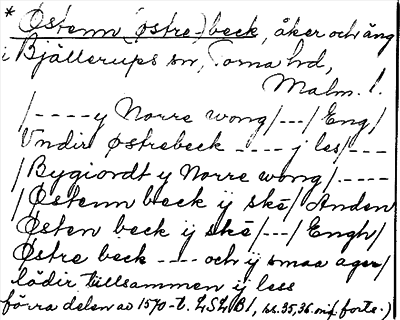 * Østenn (østre) beck, åker och äng
i Bjällerups sn, Torna hd,
Malm. l.
/----y Norre wong/---/Eng/
Vndir østrebeck ---- j les/---
/Bygiordt y Norre wong/.----
/Østenn beck ij skē/Anden
Østen beck ij skē/---/Engh/
Østre beck ---- och ij smaa ager/
lödir tillsammen ij less
förra delen av 1570-t. LSLB1, ss. 35, 36. forts.)